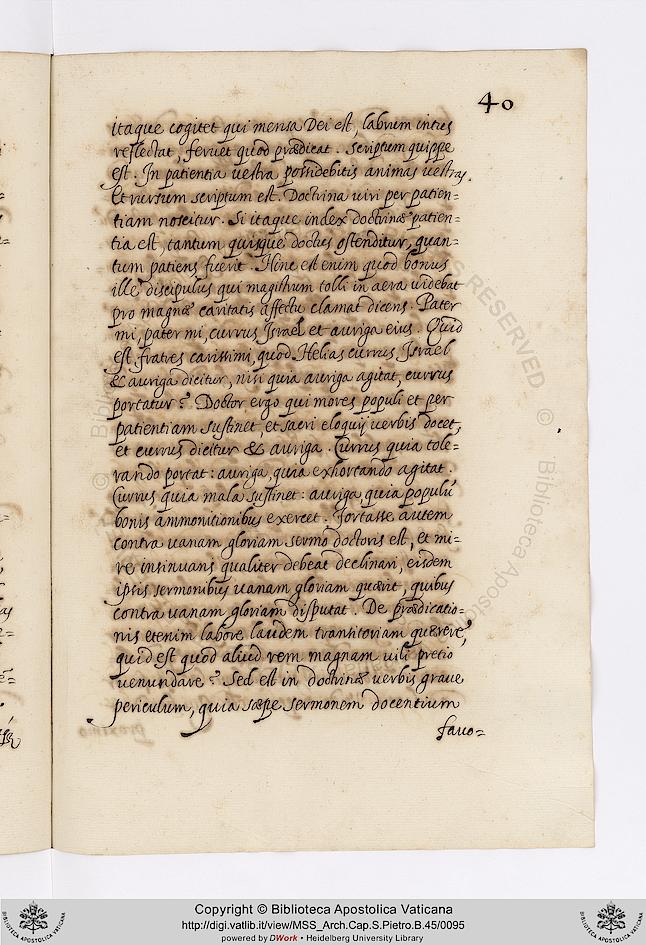 40
itaque cogitet qui mensa Dei est, labrum intus
reflectat, seruet quod prædicat. Scriptum quippe
est. In patientia uestra possidebitis animas uestras.
Et rursum scriptum est. Doctrina uiri per patien=
tiam noscitur. Si itaque index doctrinæ patien=
tia est, tantum quisque doctus ostenditur, quan=
tum patiens fuerit. Hinc est enim quod bonus
ille discipulus qui magistrum tolli in aera uidebat
pro magnæ caritatis affectu clamat dicens. Pater
mi, pater mi, currus Israel et auriga eius. Quid
est fratres carissimi, quod Helias currus Israel
& auriga dicitur, nisi quia auriga agitat, currus
portatur? Doctor ergo qui mores populi et per
patientiam sustinet, et sacri eloquij uerbis docet,
et currus dicitur & auriga. Currus quia tole=
rando portat: auriga, quia exhortando agitat.
Currus, quia mala sustinet: auriga, quia populũ
bonis ammonitionibus exercet. Fortasse autem
contra uanam gloriam sermo doctoris est, et mi=
re insinuans qualiter debeat declinari, eisdem
ipsis sermonibus uanam gloriam quærit, quibus
contra uanam gloriam disputat. De prædicatio=
nis etenim labore laudem transitoriam quærere,
quid est quod aliud rem magnam uili pretio
uenundare? Sed est in doctrinæ uerbis graue
periculum, quia sæpe sermonem docentium
fauo=
Copyright © Biblioteca Apostolica Vaticana
http://digi.vatlib.it/view/MSS_Arch.Cap.S.Pietro.B.45/0095
powered by DWork • Heidelberg University Library